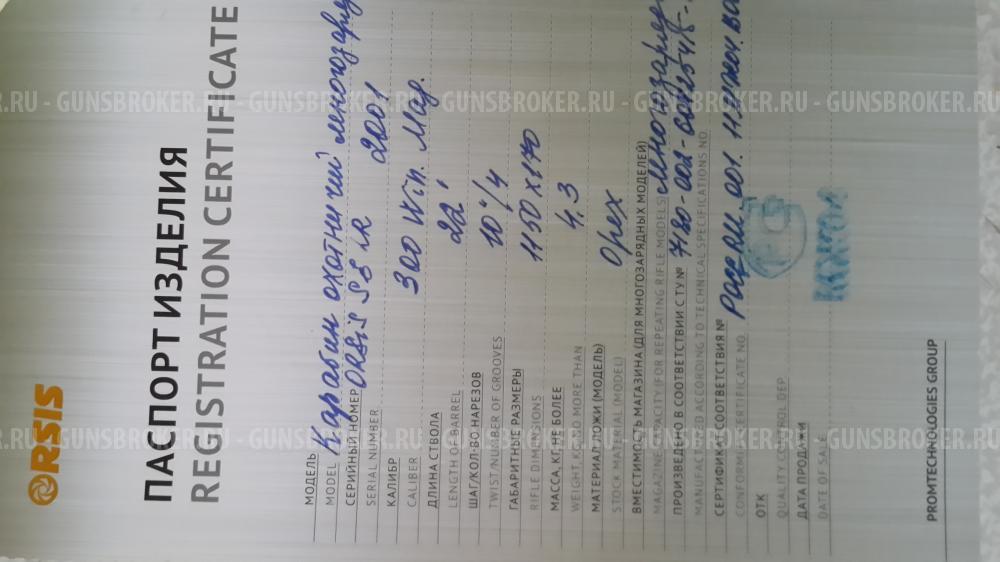 ORSIS
ПАСПОРТ ИЗДЕЛИЯ
REGISTRATION CERTIFICATE
МОДЕЛЬ
MODEL Карабин охотничий
СЕРИЙНЫЙ НОМЕР ORSIS SE
SERIAL NUMBER 2001
КАЛИБР
CALIBER 300 Win. Mag.
ДЛИНА СТВОЛА
LENGTH OF BARREL 22"
ШАГ/КОЛ-ВО НАРЕЗОВ
TWIST/NUMBER OF GROOVES 10"/4
ГАБАРИТНЫЕ РАЗМЕРЫ
RIFLE DIMENSIONS 1150x170
МАССА, КГ, НЕ БОЛЕЕ
WEIGHT, KG, NO MORE THAN 4,3
МАТЕРИАЛ ЛОЖИ (МОДЕЛЬ)
STOCK MATERIAL (MODEL) Орех
ВМЕСТИМОСТЬ МАГАЗИНА (ДЛЯ МНОГОЗАРЯДНЫХ МОДЕЛЕЙ)
MAGAZINE CAPACITY (FOR REPEATING RIFLE MODELS)
ПРОИЗВЕДЕНО В СООТВЕТСТВИИ С ТУ №
MANUFACTURED ACCORDING TO TECHNICAL SPECIFICATIONS NO.
СЕРТИФИКАТ СООТВЕТСТВИЯ №
CONFORMITY CERTIFICATE NO.
ОТК
QUALITY CONTROL DEP.
ДАТА ПРОДАЖИ
DATE OF SALE
PROMTECHNOLOGIES GROUP
GUNSBROKER.RU - GUNSBROKER.RU - GUNSBROKER.RU - GUNSBROKER.RU
GUNSBROKER.RU - GUNSBROKER.RU - GUNSBROKER.RU - GUNSBROKER.RU